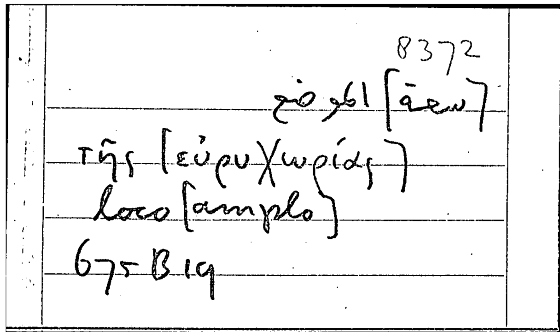 8372
τῆς [εὐρυχωρίας]
loco [amplo]
675 B 19